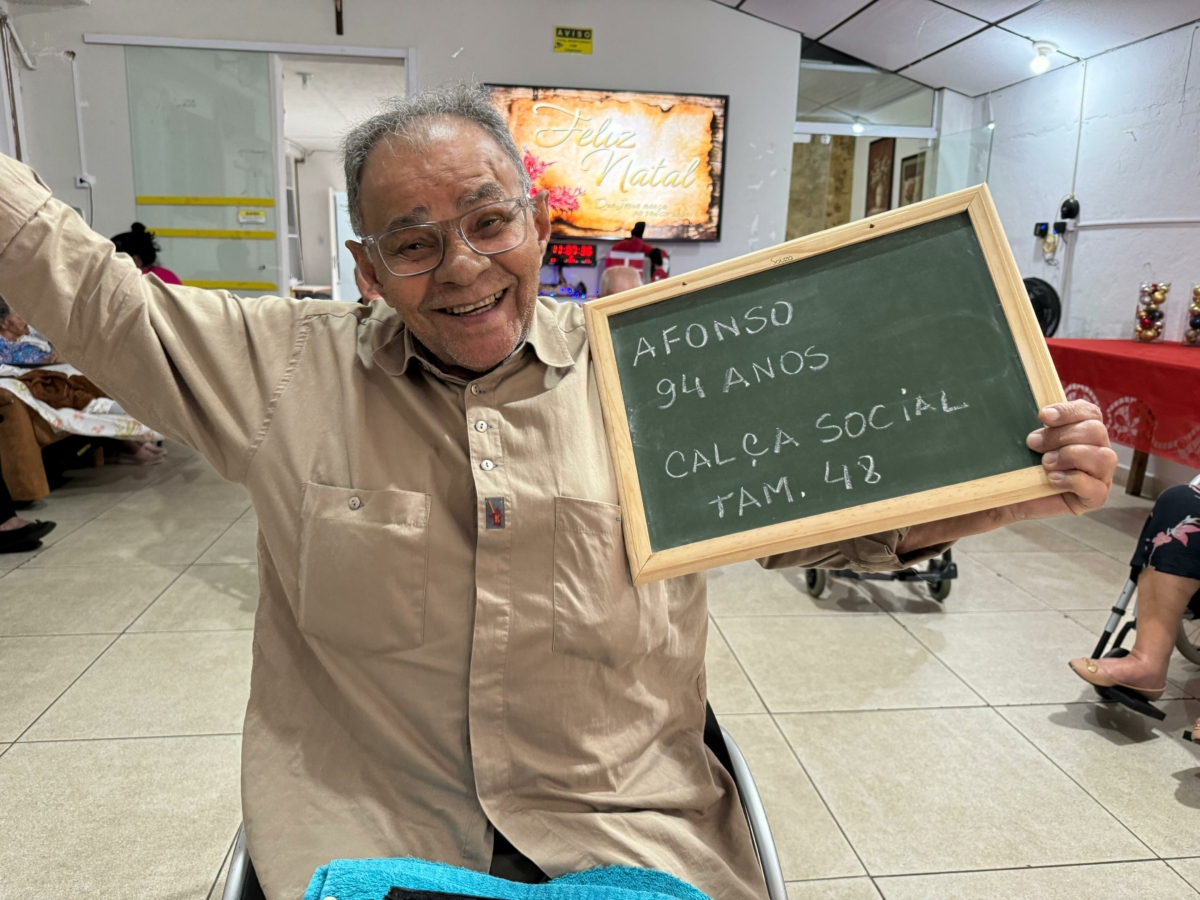 AVISO
Feliz
Natal
Souza
AFONSO
94 ANOS
CALÇA SOCIAL
TAM. 48